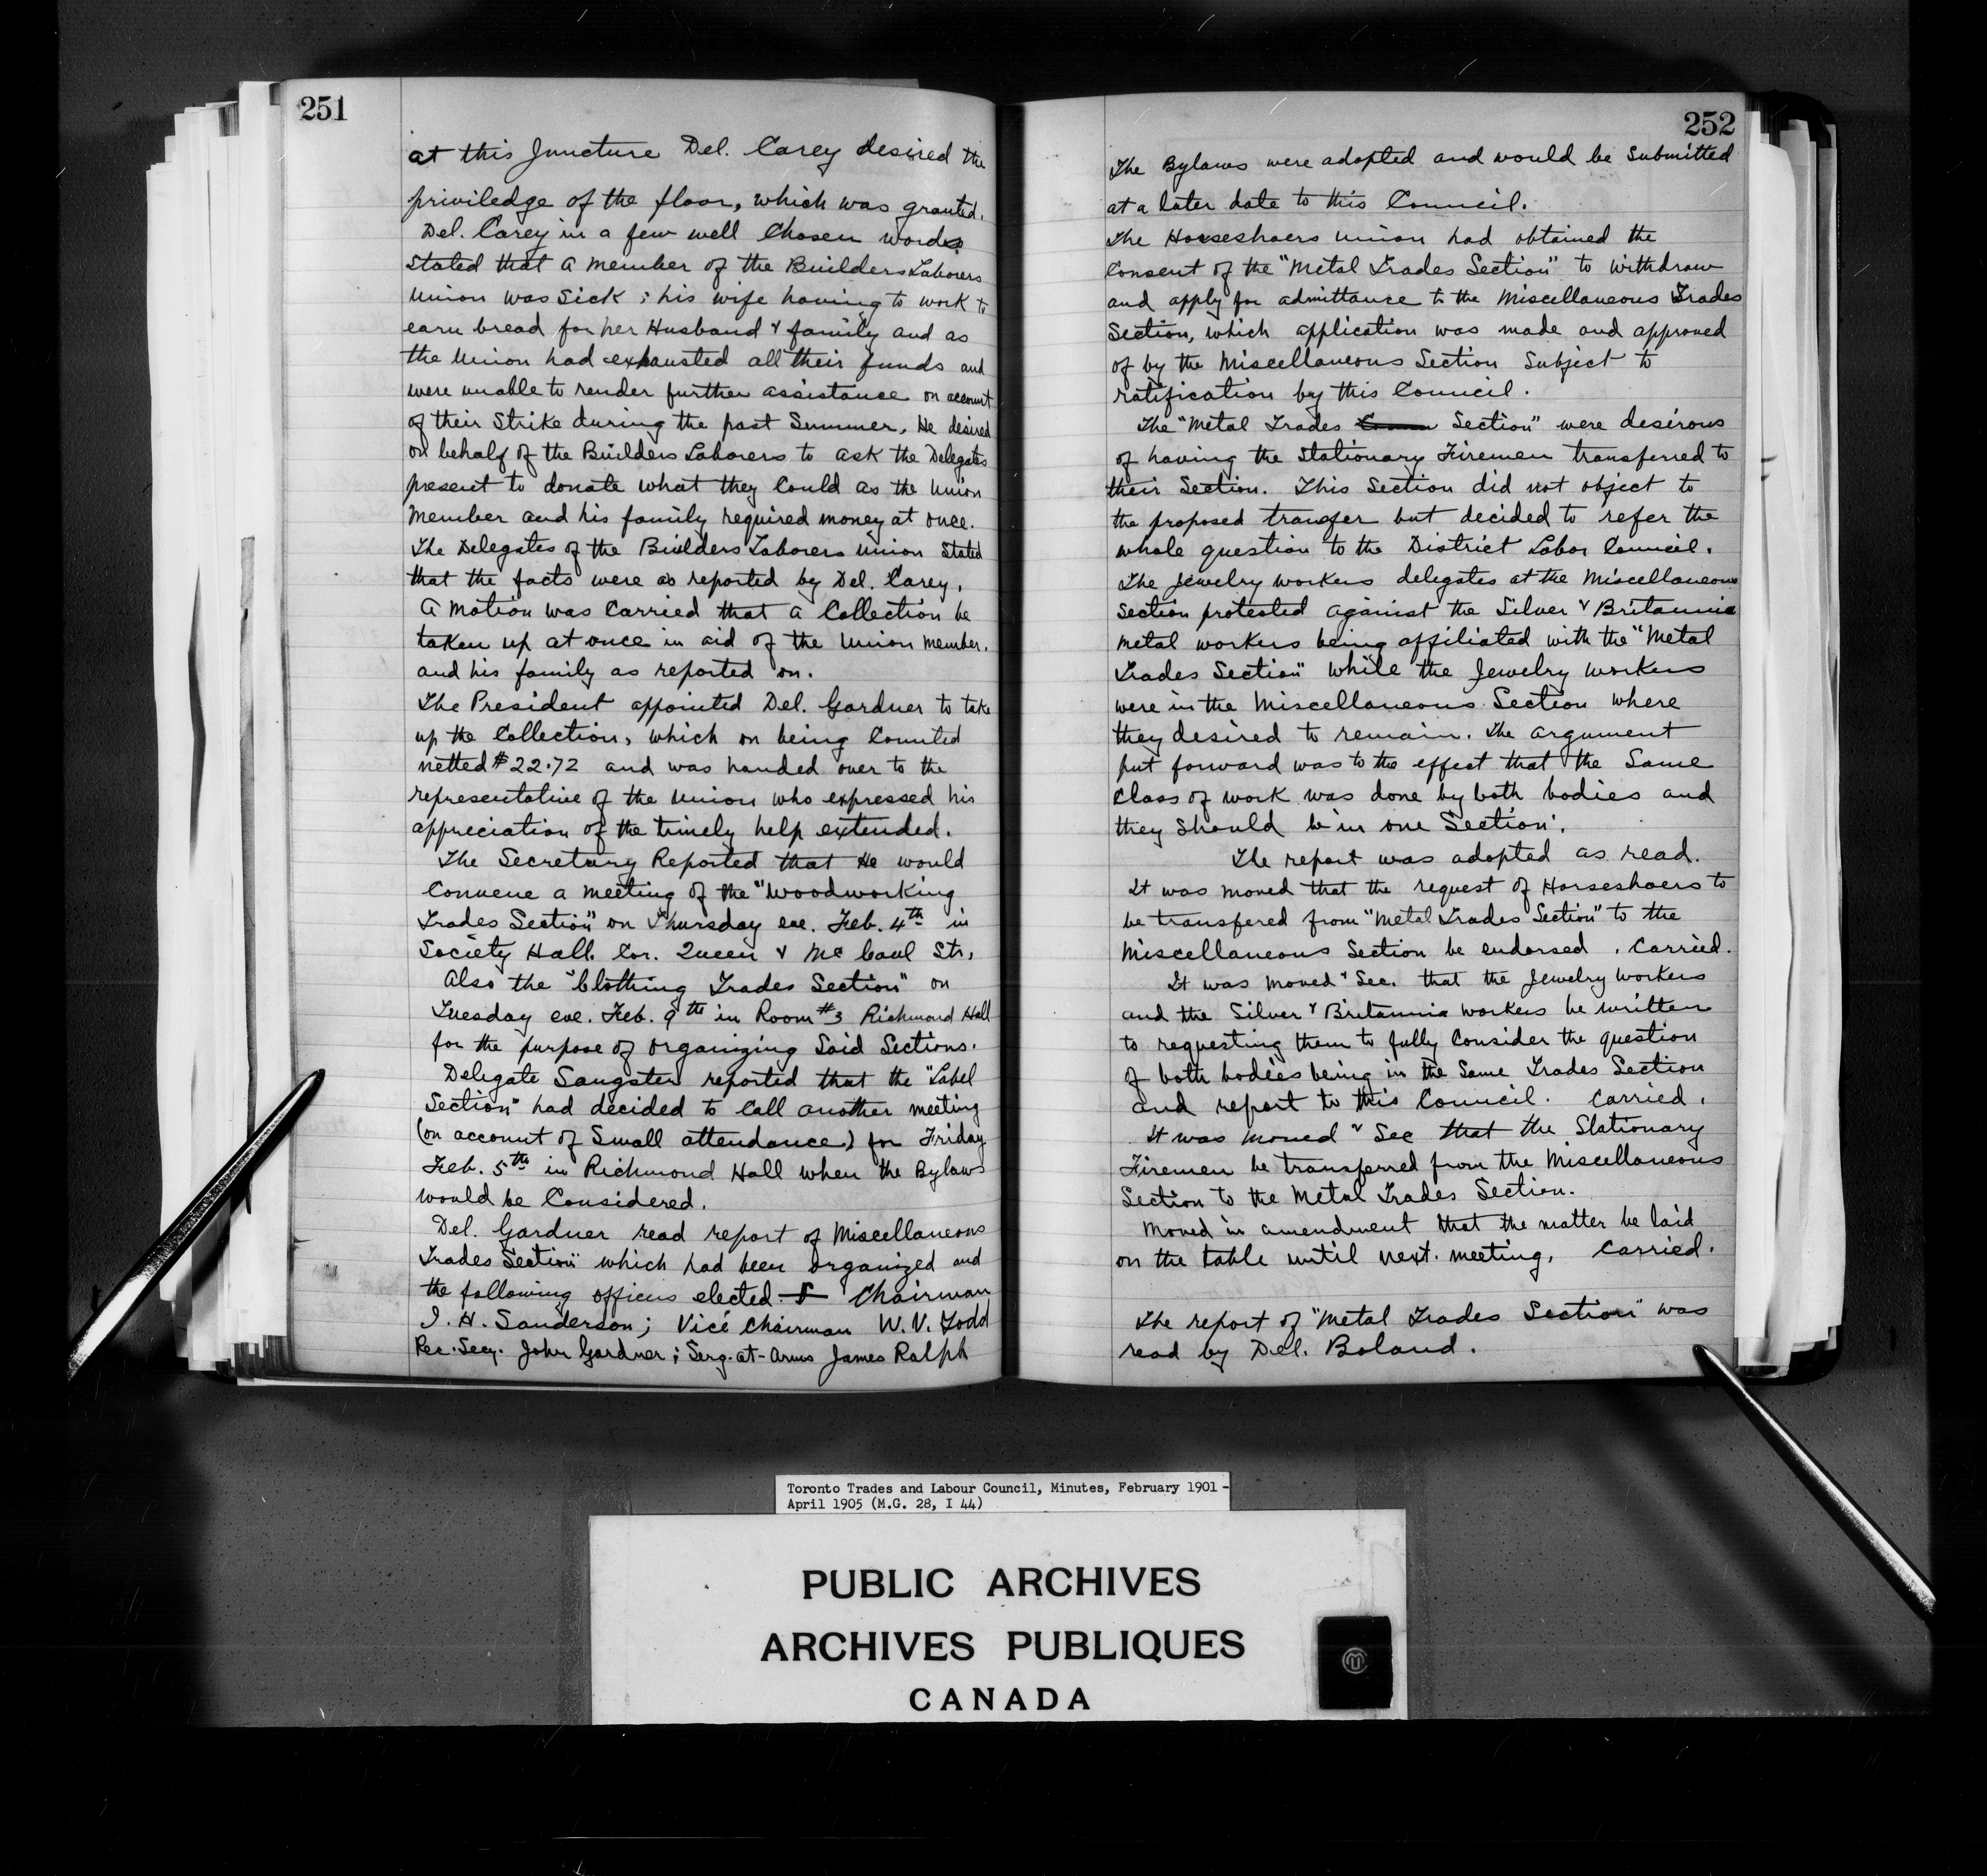 251
at this Juncture Del. Carey desired the
priviledge of the floor, which was granted.
Del. Carey in a few well Chosen words
stated that a member of the Builders Laborers
Union was Sick ; his wife having to work to
earn bread for her Husband & family and as
the Union had exhausted all their funds and
were unable to render further assistance on account
of their Strike during the past Summer. He desired
on behalf of the Builders Laborers to ask the Delegates
present to donate what they Could as the Union
Member and his family required money at once.
The Delegates of the Builders Laborers Union Stated
that the facts were as reported by Del. Carey.
A Motion was Carried that a Collection be
taken up at once in aid of the Union member.
and his family as reported on.
The President appointed Del. Gardner to take
up the Collection, which on being Counted
netted $22.72 and was handed over to the
representative of the Union who expressed his
appreciation of the timely help extended.
The Secretary Reported that He would
Convene a meeting of the "Woodworking
Trades Section" on Thursday eve. Feb. 4th in
Society Hall. Cor. Queen & McCaul Sts.
Also the "Clothing Trades Section" on
Tuesday eve. Feb. 9th in Room #3 Richmond Hall
for the purpose of Organizing Said Sections.
Delegate Sangster reported that the "Label
Section" had decided to Call another meeting
(on account of Small attendance) for Friday
Feb. 5th in Richmond Hall when the Bylaws
would be Considered.
Del. Gardner read report of Miscellaneous
Trades Section" which had been Organized and
the following officers elected. Chairman
I. H. Sanderson; Vice Chairman W. V. Todd
Rec. Secy. John Gardner ; Serg.-at-Arms James Ralph
252
The Bylaws were adopted and would be Submitted
at a later date to this Council.
The Horseshoers Union had obtained the
Consent of the "Metal Trades Section" to withdraw
and apply for admittance to the Miscellaneous Trades
Section, which application was made and approved
of by the Miscellaneous Section Subject to
ratification by this Council.
The "Metal Trades Section" were desirous
of having the Stationary Firemen transferred to
their Section. This Section did not object to
the proposed transfer but decided to refer the
whole question to the District Labor Council.
The Jewelry workers delegates at the Miscellaneous
Section protested against the Silver & Britannia
Metal workers being affiliated with the "Metal
Trades Section" while the Jewelry workers
were in the Miscellaneous Section where
they desired to remain. The argument
put forward was to the effect that the Same
Class of work was done by both bodies and
they should be in one Section.
The report was adopted as read.
It was moved that the request of Horseshoers to
be transfered from "Metal Trades Section" to the
Miscellaneous Section be endorsed . Carried.
It was Moved & Sec. that the Jewelry workers
and the Silver & Britannia workers be written
to requesting them to fully Consider the question
of both bodies being in the Same Trades Section
and report to this Council. Carried.
It was Moved & Sec that the Stationary
Firemen be transferred from the Miscellaneous
Section to the Metal Trades Section.
Moved in amendment that the matter be laid
on the table until next. meeting. Carried.
The report of "Metal Trades Section" was
read by Del. Boland.
Toronto Trades and Labour Council, Minutes, February 1901 -
April 1905 (M.G. 28, I 44)
PUBLIC ARCHIVES
ARCHIVES PUBLIQUES
CANADA